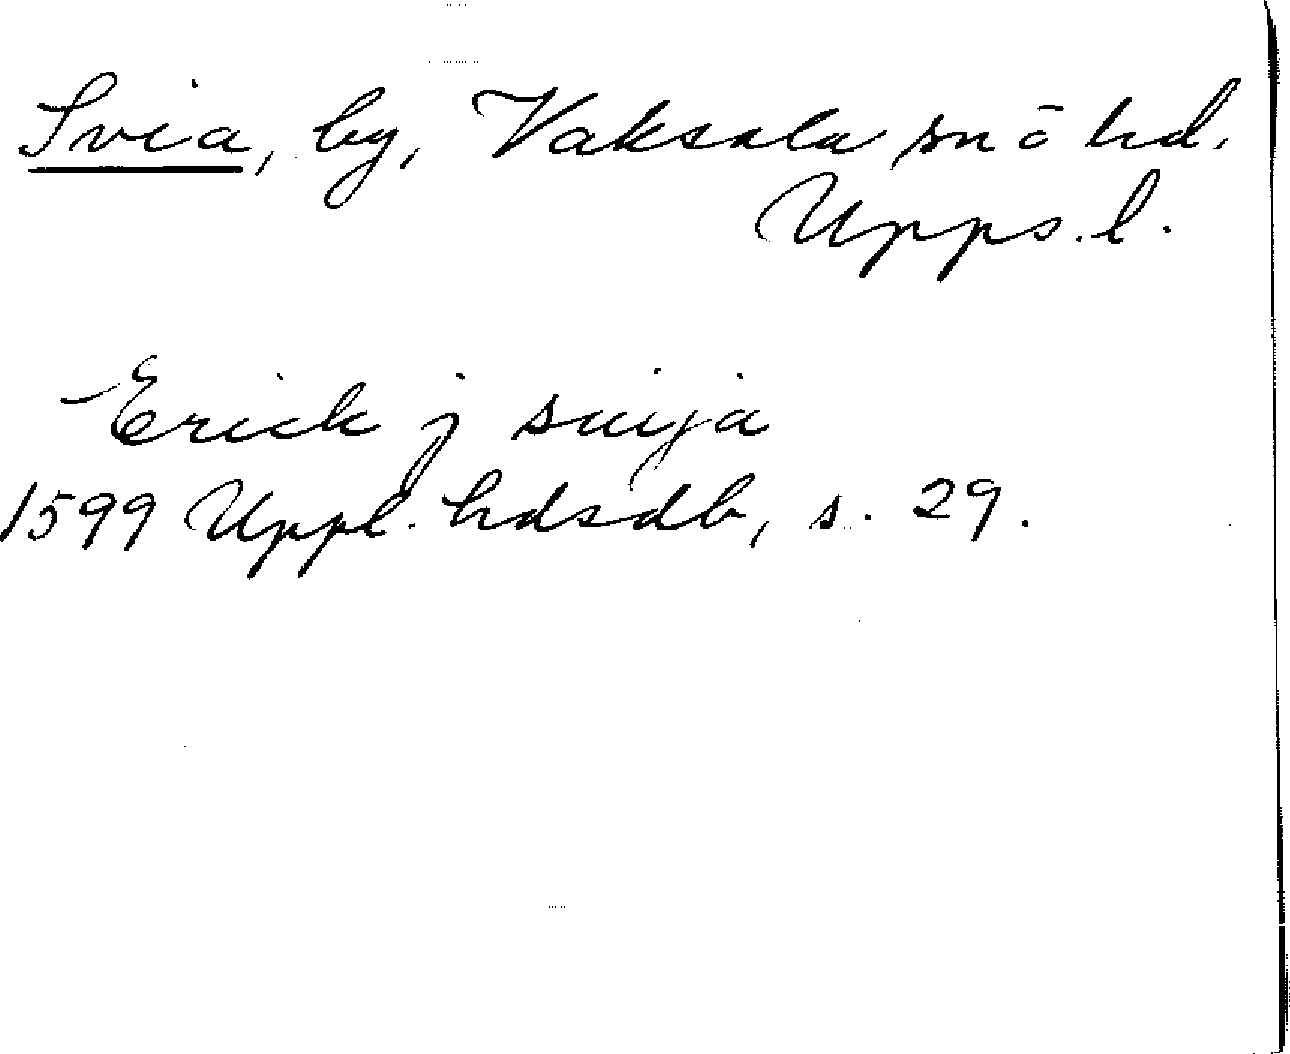 Svia, by, Vaksala sn o hd.
Upps. l.
Erick j suija
1599 Uppl. hdsdb, s. 29.